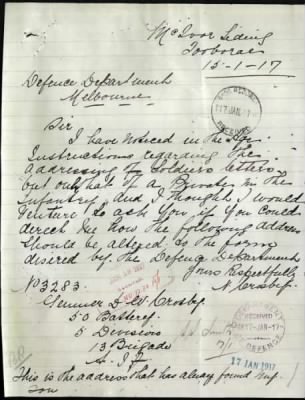 McIvor Siding
Tooborac
15-1-17
Defence Department
Melbourne
17 JAN 17
RECEIVED
Sir
I have noticed in the
Instructions regarding The
addressing of Soldiers letters
but only that of a Private in the
Infantry, and I thought I would
venture to ask you if you could
direct me how the following address
should be altered to the form
desired by the Defence Department
yours Respectfully
N Crosby
No 3283.
Gunner D W Crosby
50 Battery
5 Divisions
13 Brigade
A.I.F
RECEIVED
17-JAN-17
DEFENCE
17 JAN 1917
This is the address that has always found my
son